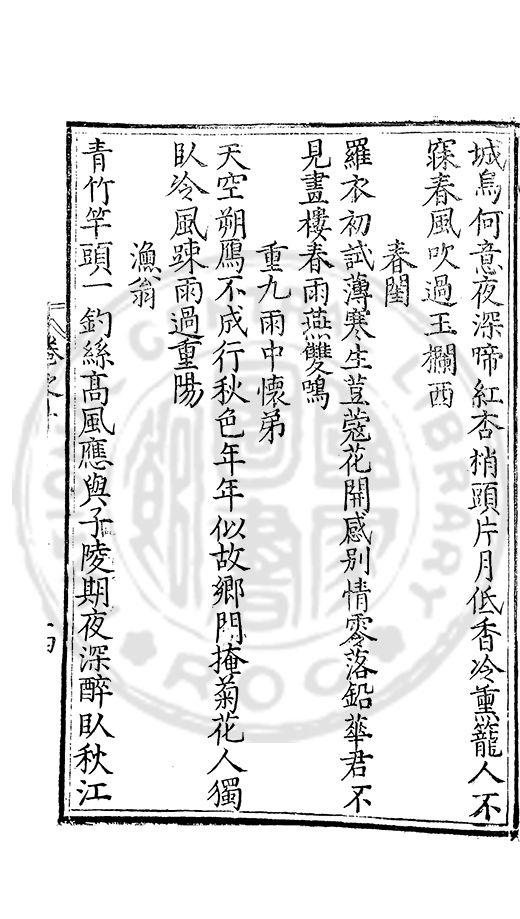 城烏何意夜深啼紅杏梢頭片月低香冷薫籠人不
寐春風吹過玉欄西
春閨
羅衣初試薄寒生荳蔻花開感别情零落鉛華君不
見畫樓春雨燕雙鳴
重九雨中懷弟
天空朔鴈不成行秋色年年似故鄉門掩菊花人獨
臥冷風踈雨過重陽
漁翁
青竹竿頭一釣絲高風應與子陵期夜深醉臥秋江
卷之十